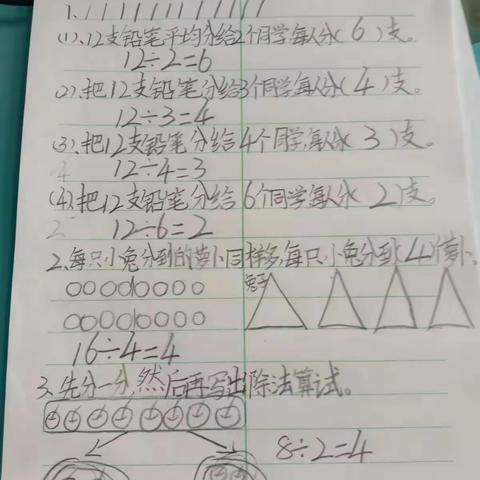 1.
(1).12支铅笔平均分给2个同学,每人分(6)支。
12÷2=6
(2).把12支铅笔分给3个同学,每人分(4)支。
12÷3=4
(3).把12支铅笔分给4个同学,每人分(3)支。
12÷4=3
(4).把12支铅笔分给6个同学每人分(2)支。
12÷6=2
2.每只小兔分到的萝卜同样多,每只小兔分到(4)个萝卜。
兔子
16÷4=4
3.先分一分,然后再写出除法算试。
8÷2=4